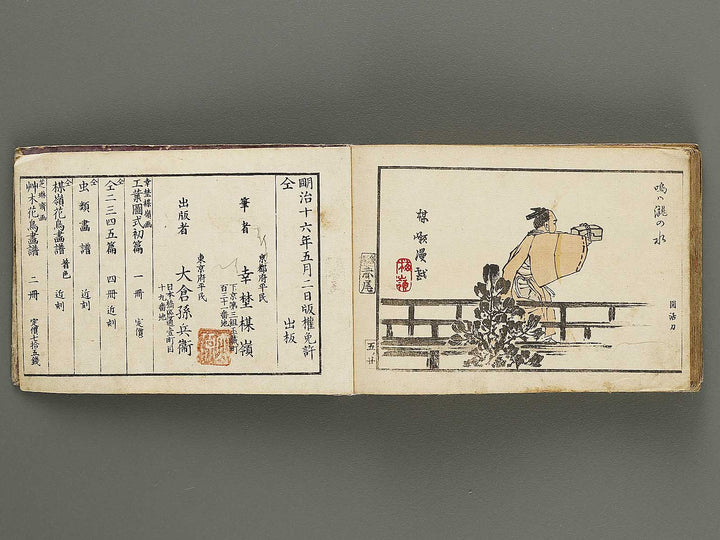 鳴ハ瀧の水
楳嶺漫戯
梅嶺
圓活刀
五ノ廿
明治十六年五月二日版權免許
仝 出板
京都府平民
筆者 幸埜楳嶺
東京府平民
出版者 大倉孫兵衞
日本橋區通壹町目
十九番地
幸埜楳嶺画
工業圖式初篇 一冊 定價
仝二三四五篇 四冊 近刻
虫類畫譜 近刻
仝
楳嶺花鳥畫譜 着色 近刻
艸木花鳥畫譜 二冊 定價七拾五錢